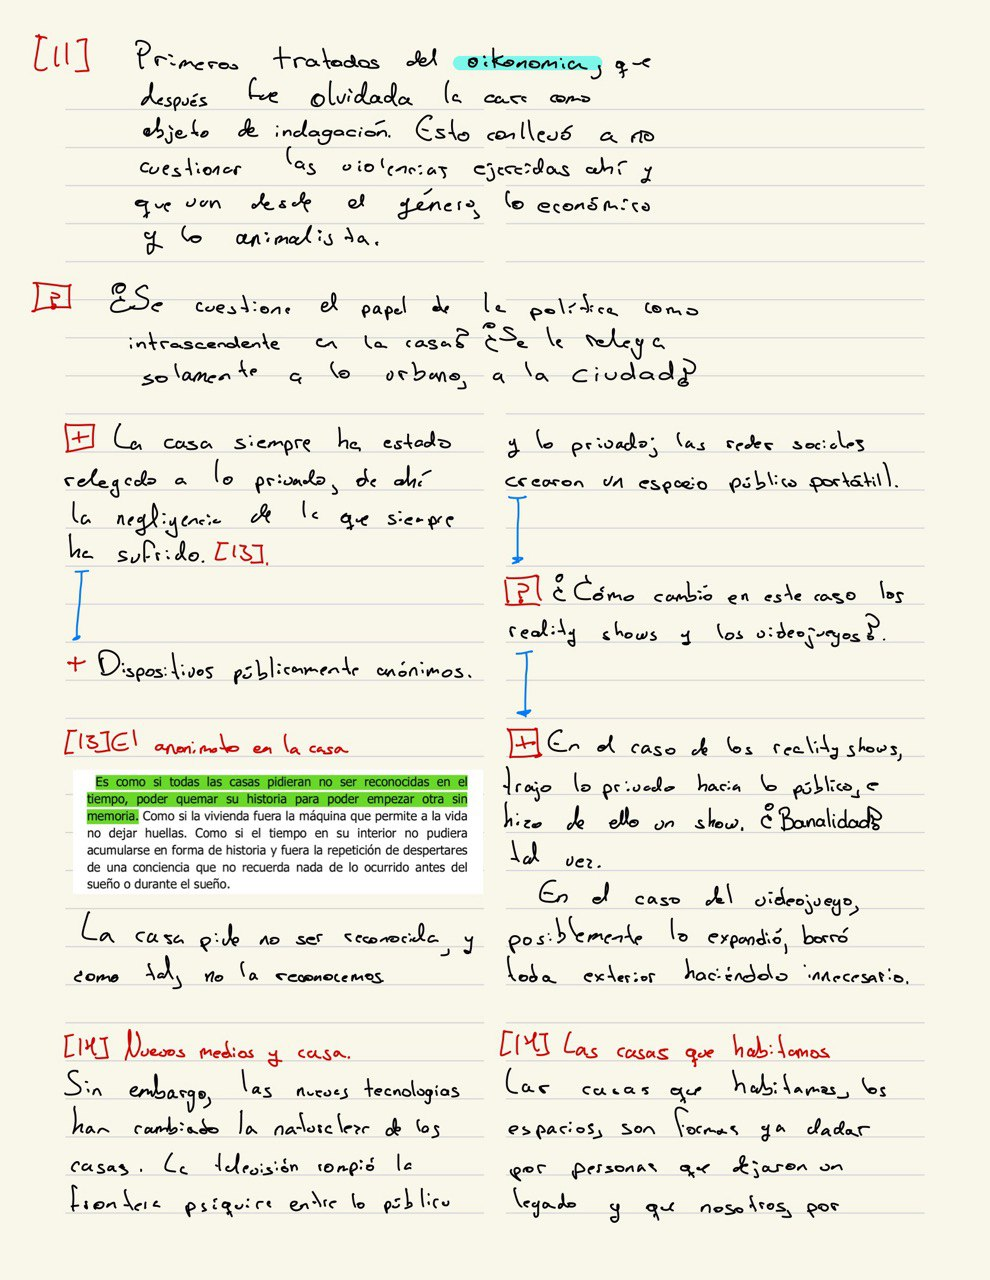 [11] Primeros tratados del oikonomia, que
después fue olvidada la casa como
objeto de indagación. Esto conllevó a no
cuestionar las violencias ejercidas ahí y
que van desde el género, lo económico
y lo animalista.
? ¿Se cuestiona el papel de la política como
intrascendente en la casa? ¿Se le relega
solamente a lo urbano, a la ciudad?
+ La casa siempre ha estado
relegado a lo privado, de ahí
la negligencia de la que siempre
ha sufrido. [13].
+ Dispositivos públicamente anónimos.
[13] El anonimato en la casa
Es como si todas las casas pidieran no ser reconocidas en el
tiempo, poder quemar su historia para poder empezar otra sin
memoria. Como si la vivienda fuera la máquina que permite a la vida
no dejar huellas. Como si el tiempo en su interior no pudiera
acumularse en forma de historia y fuera la repetición de despertares
de una conciencia que no recuerda nada de lo ocurrido antes del
sueño o durante el sueño.
La casa pide no ser reconocida, y
como tal, no la reconocemos
[14] Nuevos medios y casa.
Sin embargo, las nuevas tecnologías
han cambiado la naturaleza de las
casas. La televisión rompió la
frontera psíquica entre lo público
y lo privado; las redes sociales
crearon un espacio público portátil).
? ¿Cómo cambió en este caso los
reality shows y los videojuegos?.
+ En el caso de los reality shows,
trajo lo privado hacia lo público, e
hizo de ello un show. ¿Banalidad?
tal vez.
En el caso del videojuego,
posiblemente lo expandió, borró
toda exterior haciéndolo innecesario.
[14] Las casas que habitamos
Las casas que habitamos, los
espacios, son formas ya dadas
por personas que dejaron un
legado y que nosotros, por